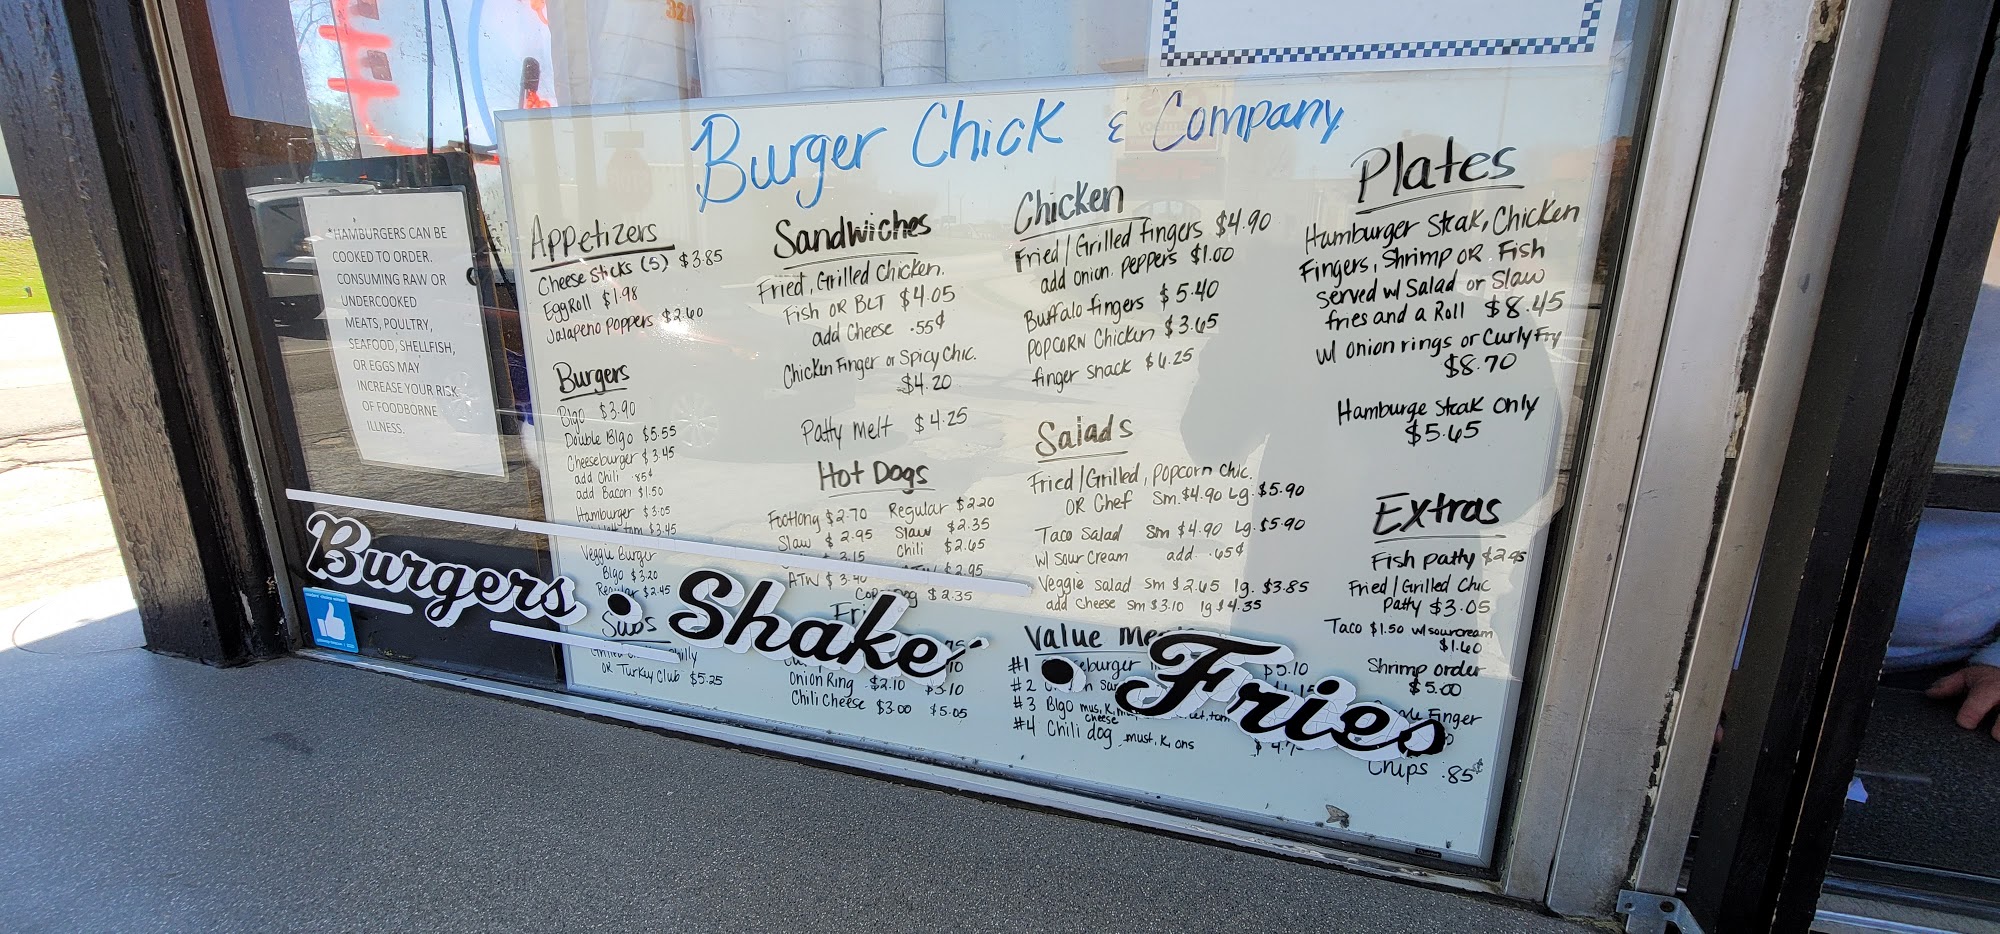 *HAMBURGERS CAN BE
COOKED TO ORDER.
CONSUMING RAW OR
UNDERCOOKED
MEATS, POULTRY,
SEAFOOD, SHELLFISH,
OR EGGS MAY
INCREASE YOUR RISK
OF FOODBORNE
ILLNESS.
Burger Chick & Company
Appetizers
Cheese Sticks (5) $3.85
EggRoll $1.98
Jalapeno Poppers $2.60
Burgers
BIgo $3.90
Double BIgo $5.55
Cheeseburger $3.45
add Chili .85¢
add Bacon $1.50
Hamburger $3.05
tom $3.45
Veggie Burger
BIgo $3.20
Regular $2.45
Subs
or Turkey Club $5.25
Sandwiches
Fried, Grilled Chicken.
Fish or BLT $4.05
add Cheese .55¢
Chicken Finger or Spicy Chic.
$4.20
Patty Melt $4.25
Hot Dogs
Footlong $2.70 Regular $2.20
Slaw $2.95 Slaw $2.35
3.15 Chili $2.65
ATW $3.40 $2.95
$2.35
Onion Ring $2.10 $3.10
Chili Cheese $3.00 $5.05
Chicken
Fried/Grilled Fingers $4.90
add onion. peppers $1.00
Buffalo fingers $5.40
POPCORN Chicken $3.65
finger snack $4.25
Salads
Fried/Grilled, Popcorn Chic.
OR Chef Sm. $4.90 Lg. $5.90
Taco Salad Sm $4.90 Lg. $5.90
w/ Sour Cream add .65¢
Veggie Salad Sm $2.65 lg. $3.85
add Cheese Sm $3.10 lg $4.35
Value
#1 $5.10
#2
#3 BIgo
#4 Chili dog cheese, must, K, ons
Plates
Hamburger Steak, Chicken
Fingers, Shrimp OR Fish
served w/ Salad or Slaw
fries and a Roll $8.45
w/ onion rings or Curly Fry
$8.70
Hamburge Steak only
$5.65
Extras
Fish patty $2.95
Fried/Grilled Chic
Patty $3.05
Taco $1.50 w/sourcream
$1.60
Shrimp order
$5.00
Finger
Chips .85¢
Burgers • Shakes • Fries